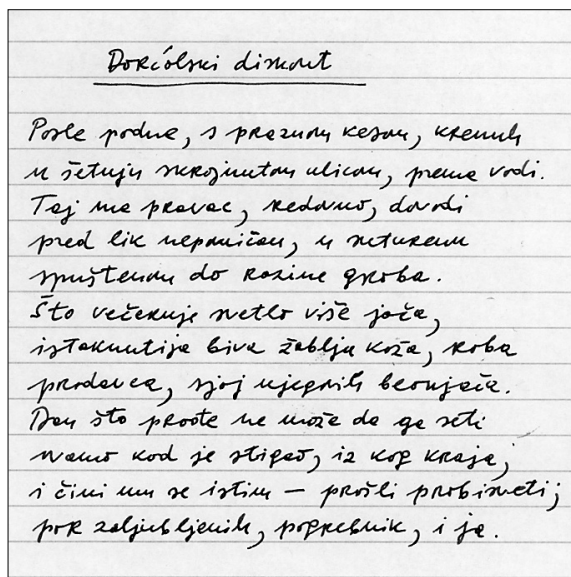 Dorćolski diskont
Posle podne, s praznom kesom, krenuh
u šetnju ulicom, prema vodi.
Taj me pravac, redovno, dovodi
pred lik nepomičan, u suterenu
spuštenom do razine groba.
Što večernje svetlo više jača,
istaknutija biva žablja koža, roba
prodavca, sjaj njegovih beonjača.
Dan što prođe ne može da ga seti
ovamo kad je stigao, iz kog kraja,
i čini mu se istim — prošli probisveti,
par zaljubljenih, pogrebnik, i ja.